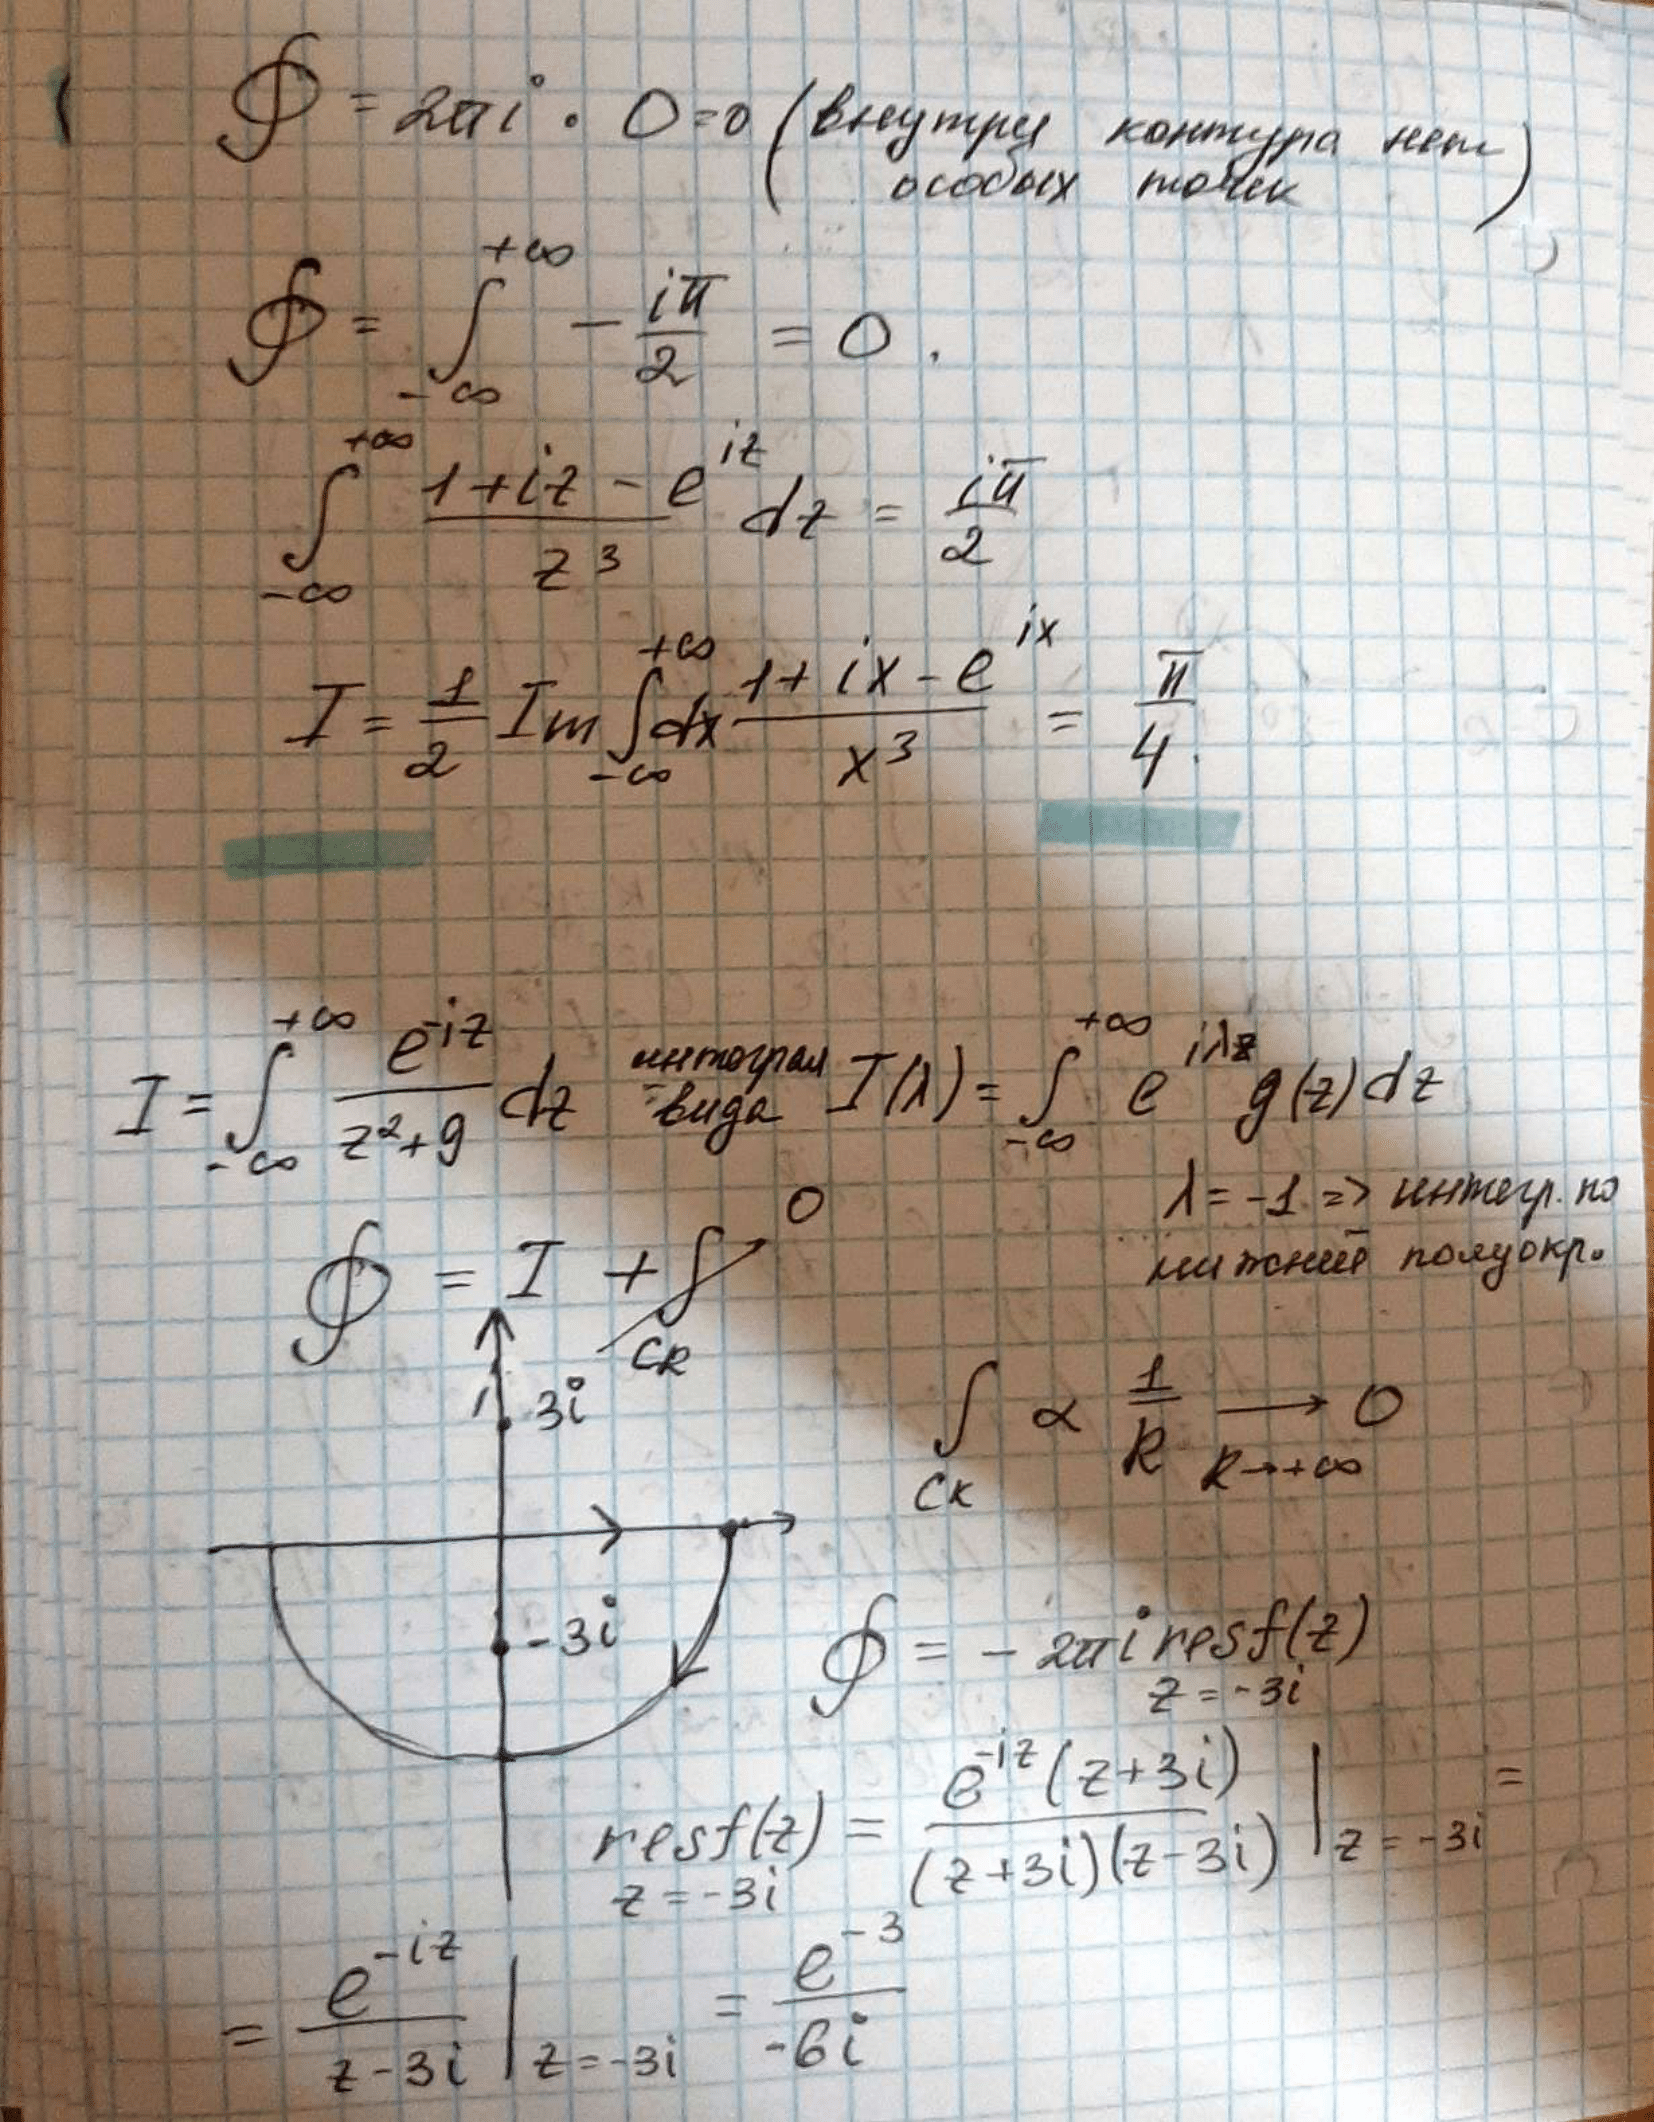 ∮ = 2πi · 0 = 0 (внутри контура нет
особых точек)
∮ = ∫_{-∞}^{+∞} - iπ/2 = 0.
∫_{-∞}^{+∞} (1+iz-e^{iz})/z^3 dz = iπ/2
I = 1/2 Im ∫_{-∞}^{+∞} dx (1+ix-e^{ix})/x^3 = π/4.
I = ∫_{-∞}^{+∞} e^{-iz}/(z^2+9) dz интеграл вида I(λ) = ∫_{-∞}^{+∞} e^{iλz} g(z) dz
λ = -1 => интегр. по
нижней полуокр.
∮ = I + ∫_{CR} → 0
3i
∫_{CR} ∝ 1/R → 0 R→+∞
-3i
∮ = - 2πi res f(z) z = -3i
res f(z) z = -3i = e^{-iz}(z+3i)/((z+3i)(z-3i)) |_{z = -3i} =
= e^{-iz}/(z-3i) |_{z = -3i} = e^{-3}/(-6i)